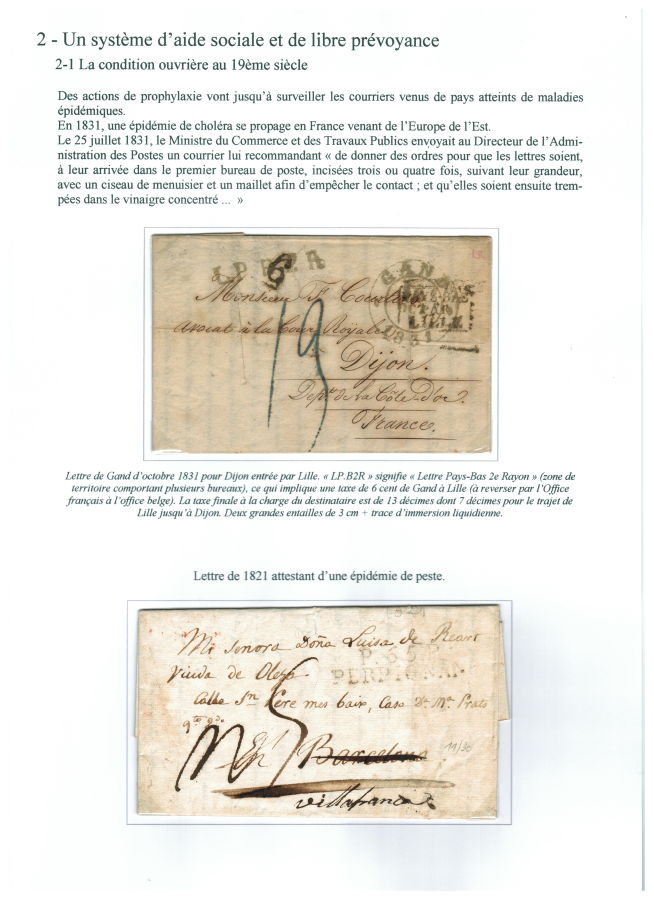 2 - Un système d'aide sociale et de libre prévoyance
2-1 La condition ouvrière au 19ème siècle
Des actions de prophylaxie vont jusqu'à surveiller les courriers venus de pays atteints de maladies
épidémiques.
En 1831, une épidémie de choléra se propage en France venant de l'Europe de l'Est.
Le 25 juillet 1831, le Ministre du Commerce et des Travaux Publics envoyait au Directeur de l'Admi-
nistration des Postes un courrier lui recommandant « de donner des ordres pour que les lettres soient,
à leur arrivée dans le premier bureau de poste, incisées trois ou quatre fois, suivant leur grandeur,
avec un ciseau de menuisier et un maillet afin d'empêcher le contact ; et qu'elles soient ensuite trem-
pées dans le vinaigre concentré ... »
6
GAND
Monsieur
LILLE
avocat à la Cour Royale
1831
13
Dijon.
Dept de la Côte d'or.
France.
Lettre de Gand d'octobre 1831 pour Dijon entrée par Lille. « LP.B2R » signifie « Lettre Pays-Bas 2e Rayon » (zone de
territoire comportant plusieurs bureaux), ce qui implique une taxe de 6 cent de Gand à Lille (à reverser par l'Office
français à l'office belge). La taxe finale à la charge du destinataire est de 13 décimes dont 7 décimes pour le trajet de
Lille jusqu'à Dijon. Deux grandes entailles de 3 cm + trace d'immersion liquidienne.
Lettre de 1821 attestant d'une épidémie de peste.
Mi Senora Doña Luisa de
Viuda de
PERPIGNAN
Calle Sn Pere mes baix, Casa Dn Ma
Barcelona
villafranca